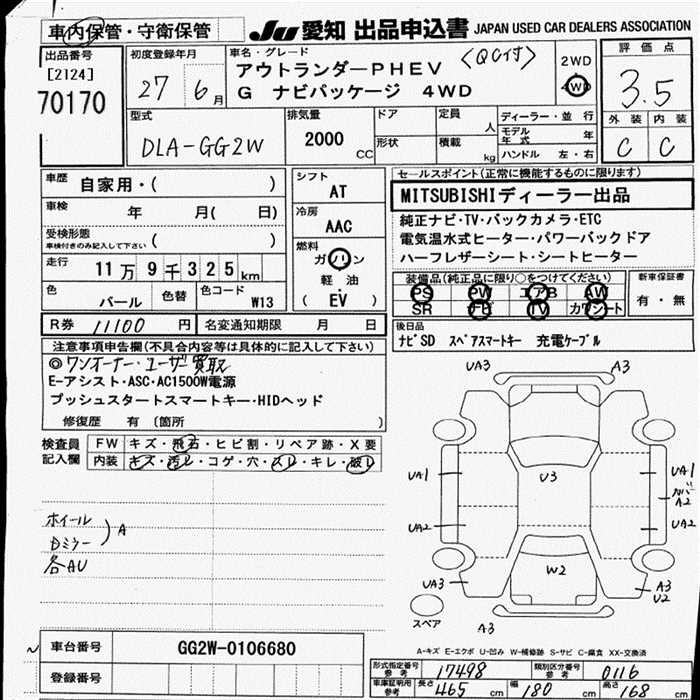 車内保管・守衛保管
JU 愛知 出品申込書 JAPAN USED CAR DEALERS ASSOCIATION
出品番号
[2124]
70170
初度登録年月
27年 6月
車名・グレード
アウトランダーPHEV 〈QC付〉
G ナビパッケージ 4WD
2WD
4WD
評価点
3.5
外装 内装
C C
型式
DLA-GG2W
排気量
2000 CC
ドア
形状
定員 人
積載 kg
ディーラー・並行
モデル年式 年
ハンドル 左・右
車歴 自家用・( )
車検 年 月( 日)
受検形態
車検付きのみ記入して下さい ( )
走行 11万9千325km
色 パール
色替
色コード W13
シフト
AT
冷房
AAC
燃料
ガソリン
軽油
( EV )
セールスポイント(正常に機能するものに限ります)
MITSUBISHIディーラー出品
純正ナビ・TV・バックカメラ・ETC
電気温水式ヒーター・パワーバックドア
ハーフレザーシート・シートヒーター
装備品(純正品に限り○をつけてください)
PS PW エアB AW
SR ナビ TV カワシート
新車保証書
有・無
R券 11100 円 名変通知期限 月 日
後日品
ナビSD スペアスマートキー 充電ケーブル
注意事項申告欄(不具合内容等は具体的に記入して下さい)
◎ワンオーナー・ユーザー買取
E-アシスト・ASC・AC1500W電源
プッシュスタートスマートキー・HIDヘッド
修復歴 有 〔箇所 〕
検査員記入欄
FW キズ・飛石・ヒビ割・リペア跡・X要
内装 キズ・汚レ・コゲ・穴・スレ・キレ・破レ
ホイール
Dミラー ) A
各AU
UA3 A3
U3
UA1 UA1
A2
UA2 UA2
W2
UA3 A3
U2
スペア
A3
A-キズ E-エクボ U-凹み W-補修跡 S-サビ C-腐食 XX-交換済
車台番号 GG2W-0106680
登録番号
形式指定番号 参考 17498 類別区分番号 参考 0116
車庫証明用 参考 長さ 465 cm 幅 180 cm 高さ 168 cm